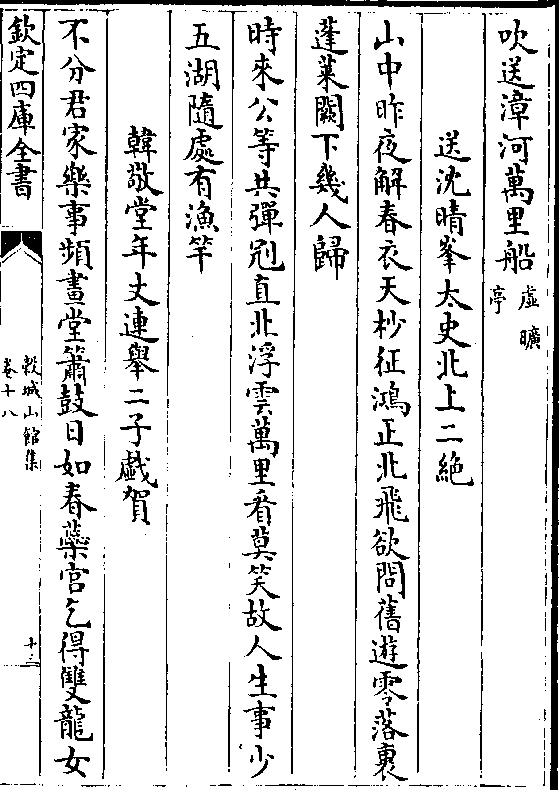 吹送漳河萬里船虛曠亭
送沈晴峯太史北上二絶
山中昨夜解春衣天杪征鴻正北飛欲問舊遊零落裏
蓬萊闕下幾人歸
時來公等共彈冠直北浮雲萬里看莫笑故人生事少
五湖隨處有漁竿
韓敬堂年丈連舉二子戯賀
不分君家樂事頻畫堂簫鼓日如春蘂宮乞得雙龍女
欽定四庫全書
榖城山館集
卷十八